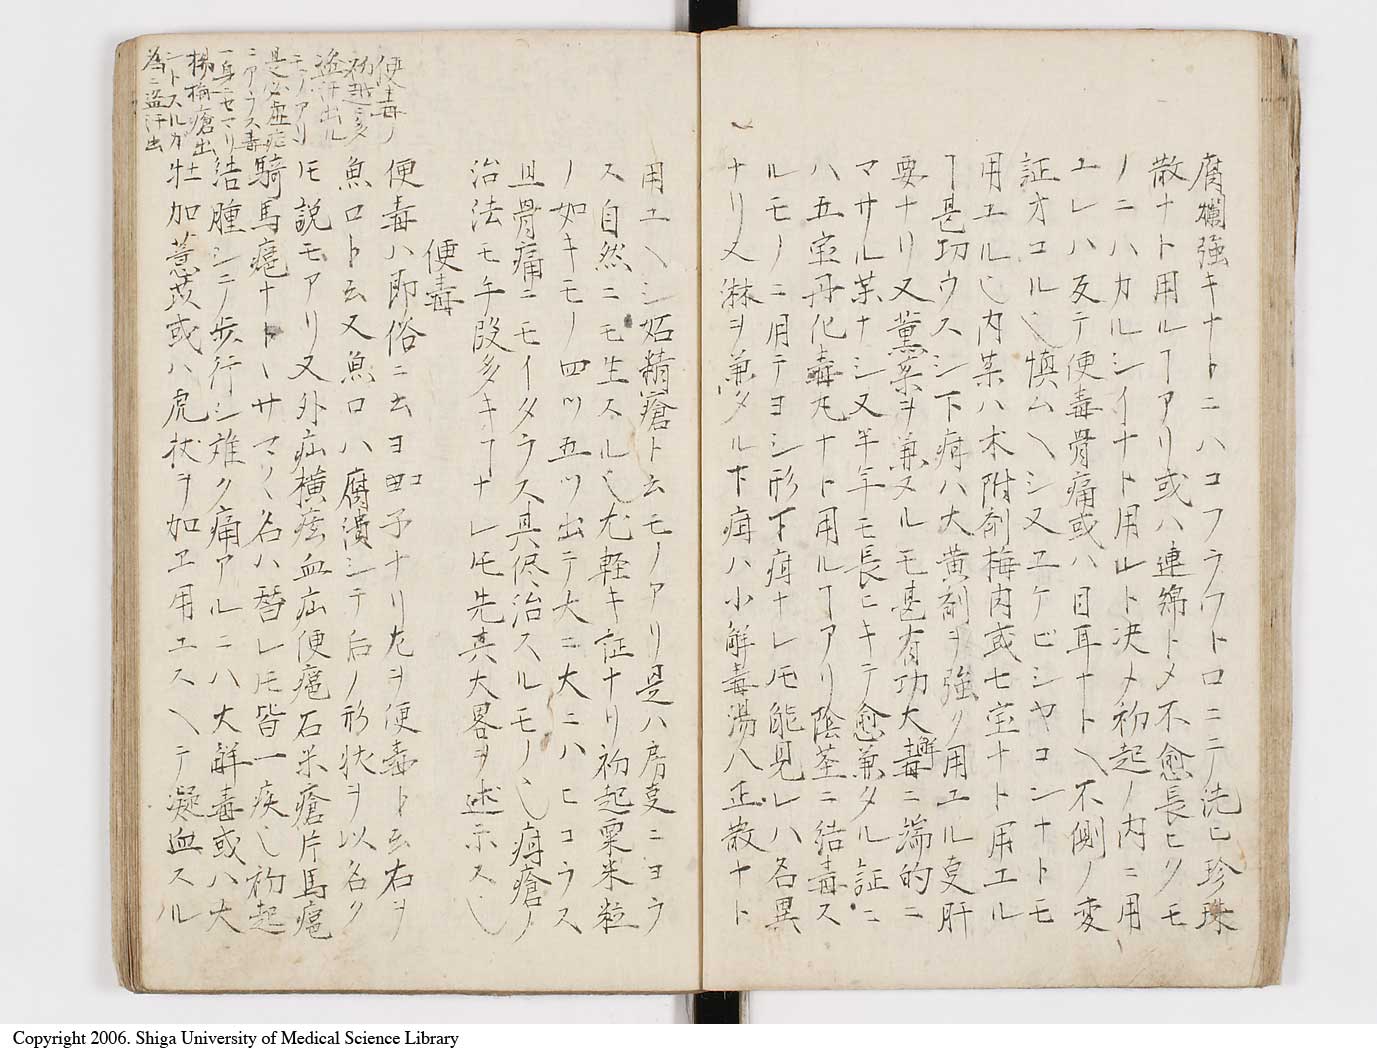 腐爛強キナトニハコフラワトロニテ洗ヒ珍珠
散ナト用ルヿアリ或ハ連綿トメ不愈長ヒクモ
ノニハカルシイナト用ルト决メ初起ノ内ニ用
ユレハ反テ便毒骨痛或ハ目耳ナト〵不側ノ変
証オコル乀慎ム〵シ又ユケビシヤコシナトモ
用ユル乀内薬ハ木附剤梅肉或七宝ナト用エル
ヿ甚功ウスシ下疳ハ大黄剤ヲ強ク用エル叓肝
要ナリ又薫薬ヲ兼ヌルモ甚有功大解毒ニ端的ニ
マサル薬ナシ又半年モ長ヒキテ愈兼タル証ニ
ハ五宝丹化毒丸ナト用ルヿアリ陰茎ニ結毒ス
ルモノニ用テヨシ形下疳ナレ𪜈能見レハ各異
ナリ又淋ヲ兼タル下疳ハ小解毒湯八正散ナト
用ユ〵シ妬精瘡ト云モノアリ是ハ房叓ニヨラ
ス自然ニモ生スル乀尤軽キ証ナリ初起粟米粒
ノ如キモノ四ツ五ツ出テ大ニ大ニハヒコラス
且骨痛ニモイタラス其侭治スルモノ乀疳瘡ノ
治法モ手段多キヿナレ𪜈先其大畧ヲ述示ス乀
便毒
便毒ハ即俗ニ云ヨコ子ナリ左ヲ便毒ト云右ヲ
魚口ト云又魚口ハ腐潰シテ后ノ形状ヲ以名ク
𪜈説モアリ又外疝横痃血疝便癰石米瘡片馬癰
騎馬癰ナト〵サマ〳〵名ハ替レ𪜈皆一疾乀初起
結腫シテ歩行シ難ク痛アルニハ大解毒或ハ大
牡加薏苡或ハ虎杖ヲ加ヱ用ユス〵テ凝血スル
便毒ノ
初起ニ多
盗汗出ル
モノアリ
是必虚症
ニアラス毒
一身ニセマリ
楊梅瘡出
ントスルガ
為ニ盗汗出
Copyright 2006. Shiga University of Medical Science Library